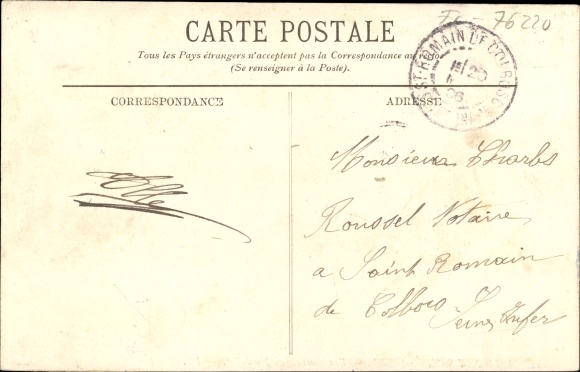 76220
CARTE POSTALE
Tous les Pays étrangers n'acceptent pas la Correspondance au
(Se renseigner à la Poste).
ST ROMAIN DE COLBOSC
20
06
CORRESPONDANCE
ADRESSE
Monsieur Charles
Roussel Notaire
a Saint Romain
de Colbosc Seine Infer